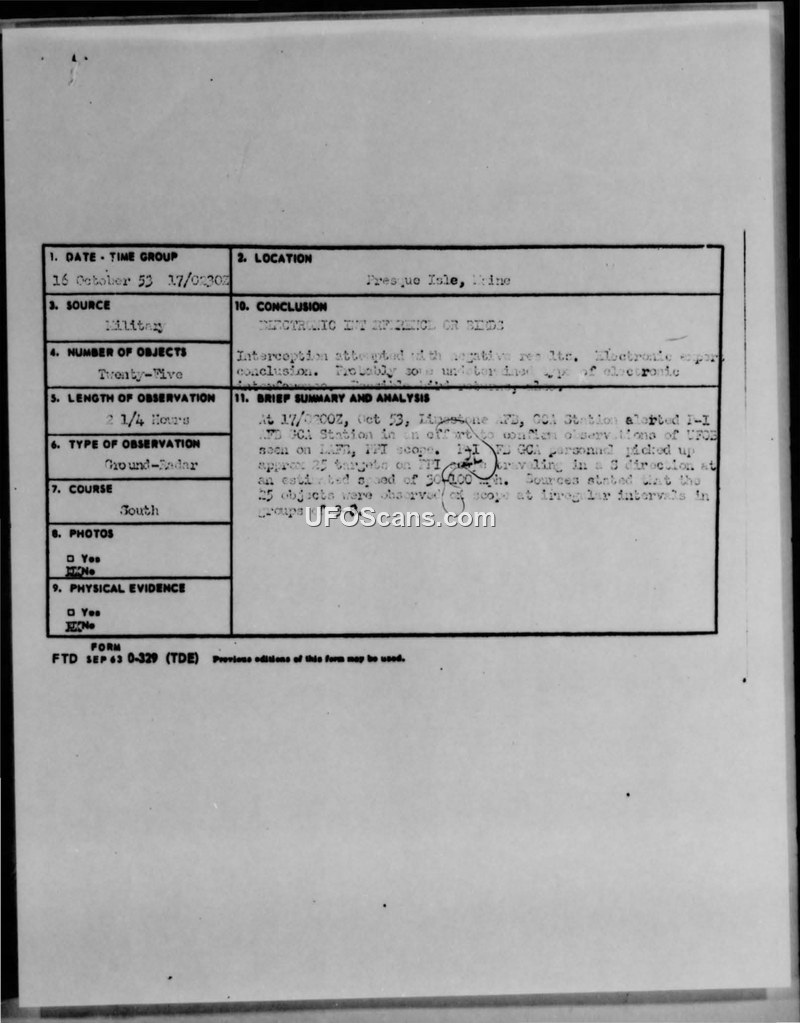 1. DATE - TIME GROUP
16 October 53 17/0230Z
2. LOCATION
Presque Isle, Maine
3. SOURCE
Military
10. CONCLUSION
ELECTRONIC INTERFERENCE OR BIRDS
Interception attempted with negative results. Electronic expert
conclusion. Probably some undetermined type of electronic
interference.
4. NUMBER OF OBJECTS
Twenty-Five
5. LENGTH OF OBSERVATION
2 1/4 Hours
11. BRIEF SUMMARY AND ANALYSIS
At Oct 53, Limestone AFB, GCA Station alerted P-I
AFB GCA Station in an effort to confirm observations of UFOB
seen on LAFB, PPI scope. P-I AFB GCA personnel picked up
approx 25 targets on PPI traveling in a S direction at
an estimated speed of mph. Sources stated that the
25 objects were observed on scope at irregular intervals in
groups of
6. TYPE OF OBSERVATION
Ground-Radar
7. COURSE
South
8. PHOTOS
□ Yes
No
9. PHYSICAL EVIDENCE
□ Yes
No
FORM
FTD SEP 63 0-329 (TDE) Previous editions of this form may be used.
UFOScans.com